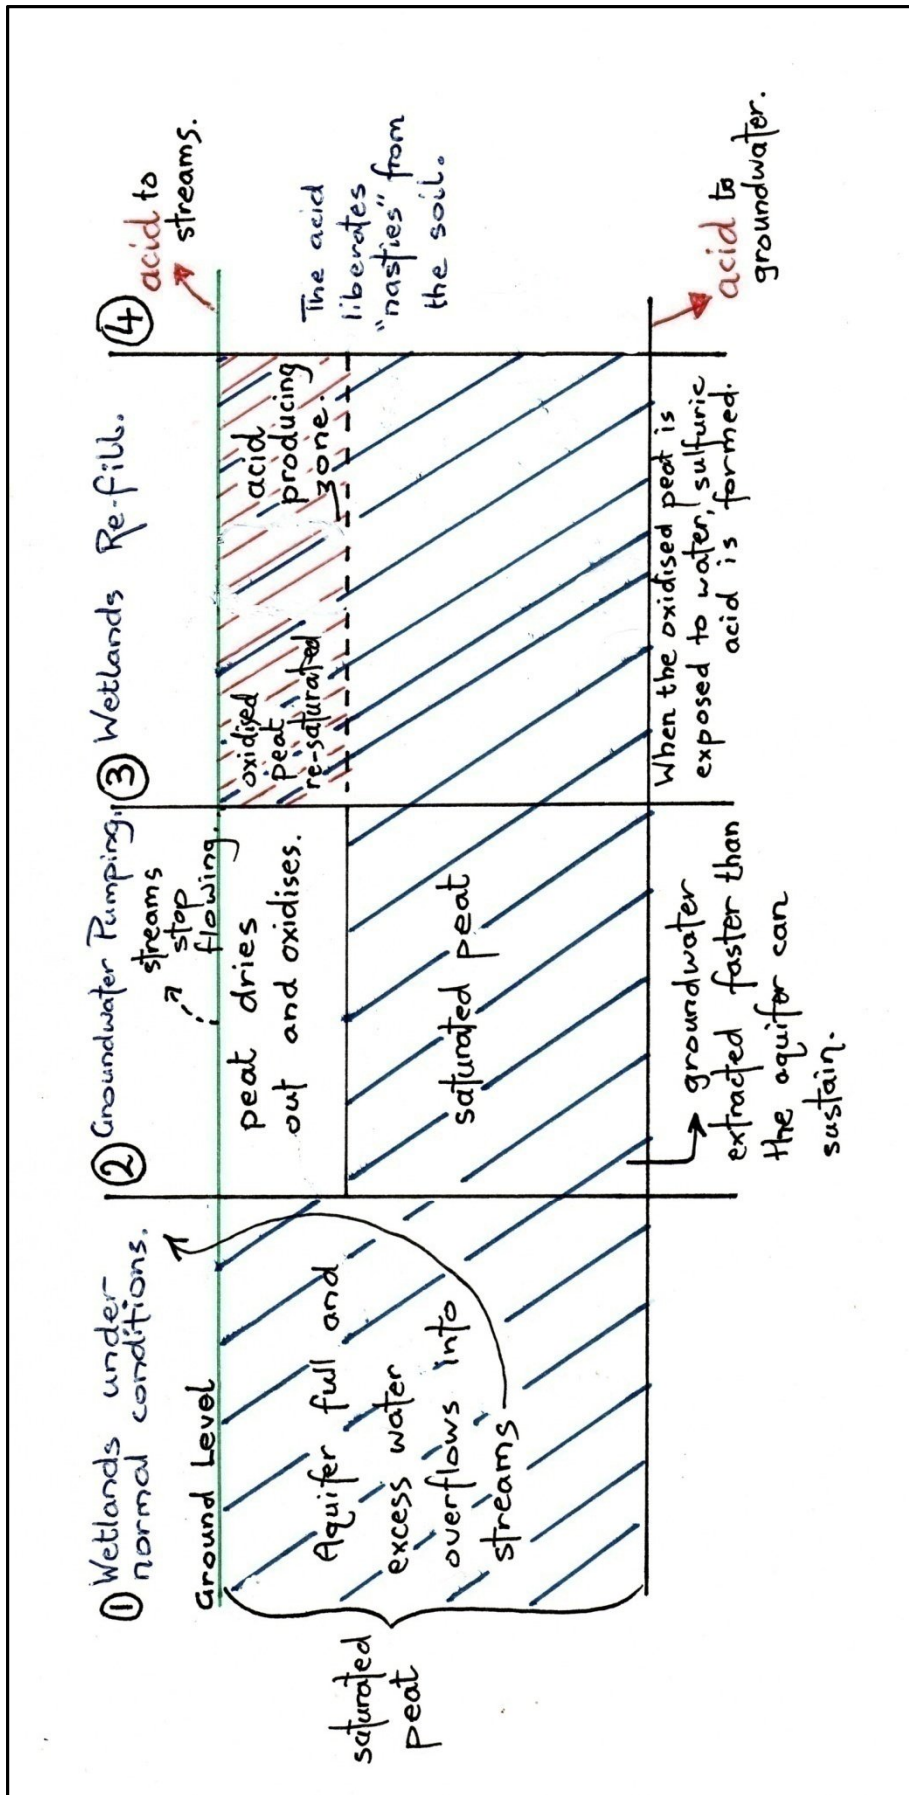 ① Wetlands under
normal conditions.
Ground Level
saturated
peat
Aquifer full and
excess water
overflows into
streams
② Groundwater Pumping.
streams
stop
flowing.
peat dries
out and oxidises.
saturated peat
groundwater
extracted faster than
the aquifer can
sustain.
③ Wetlands Re-fill.
oxidised
peat
re-saturated
acid
producing
zone.
When the oxidised peat is
exposed to water, sulfuric
acid is formed.
④
acid to
streams.
The acid
liberates
"nasties" from
the soil.
acid to
groundwater.